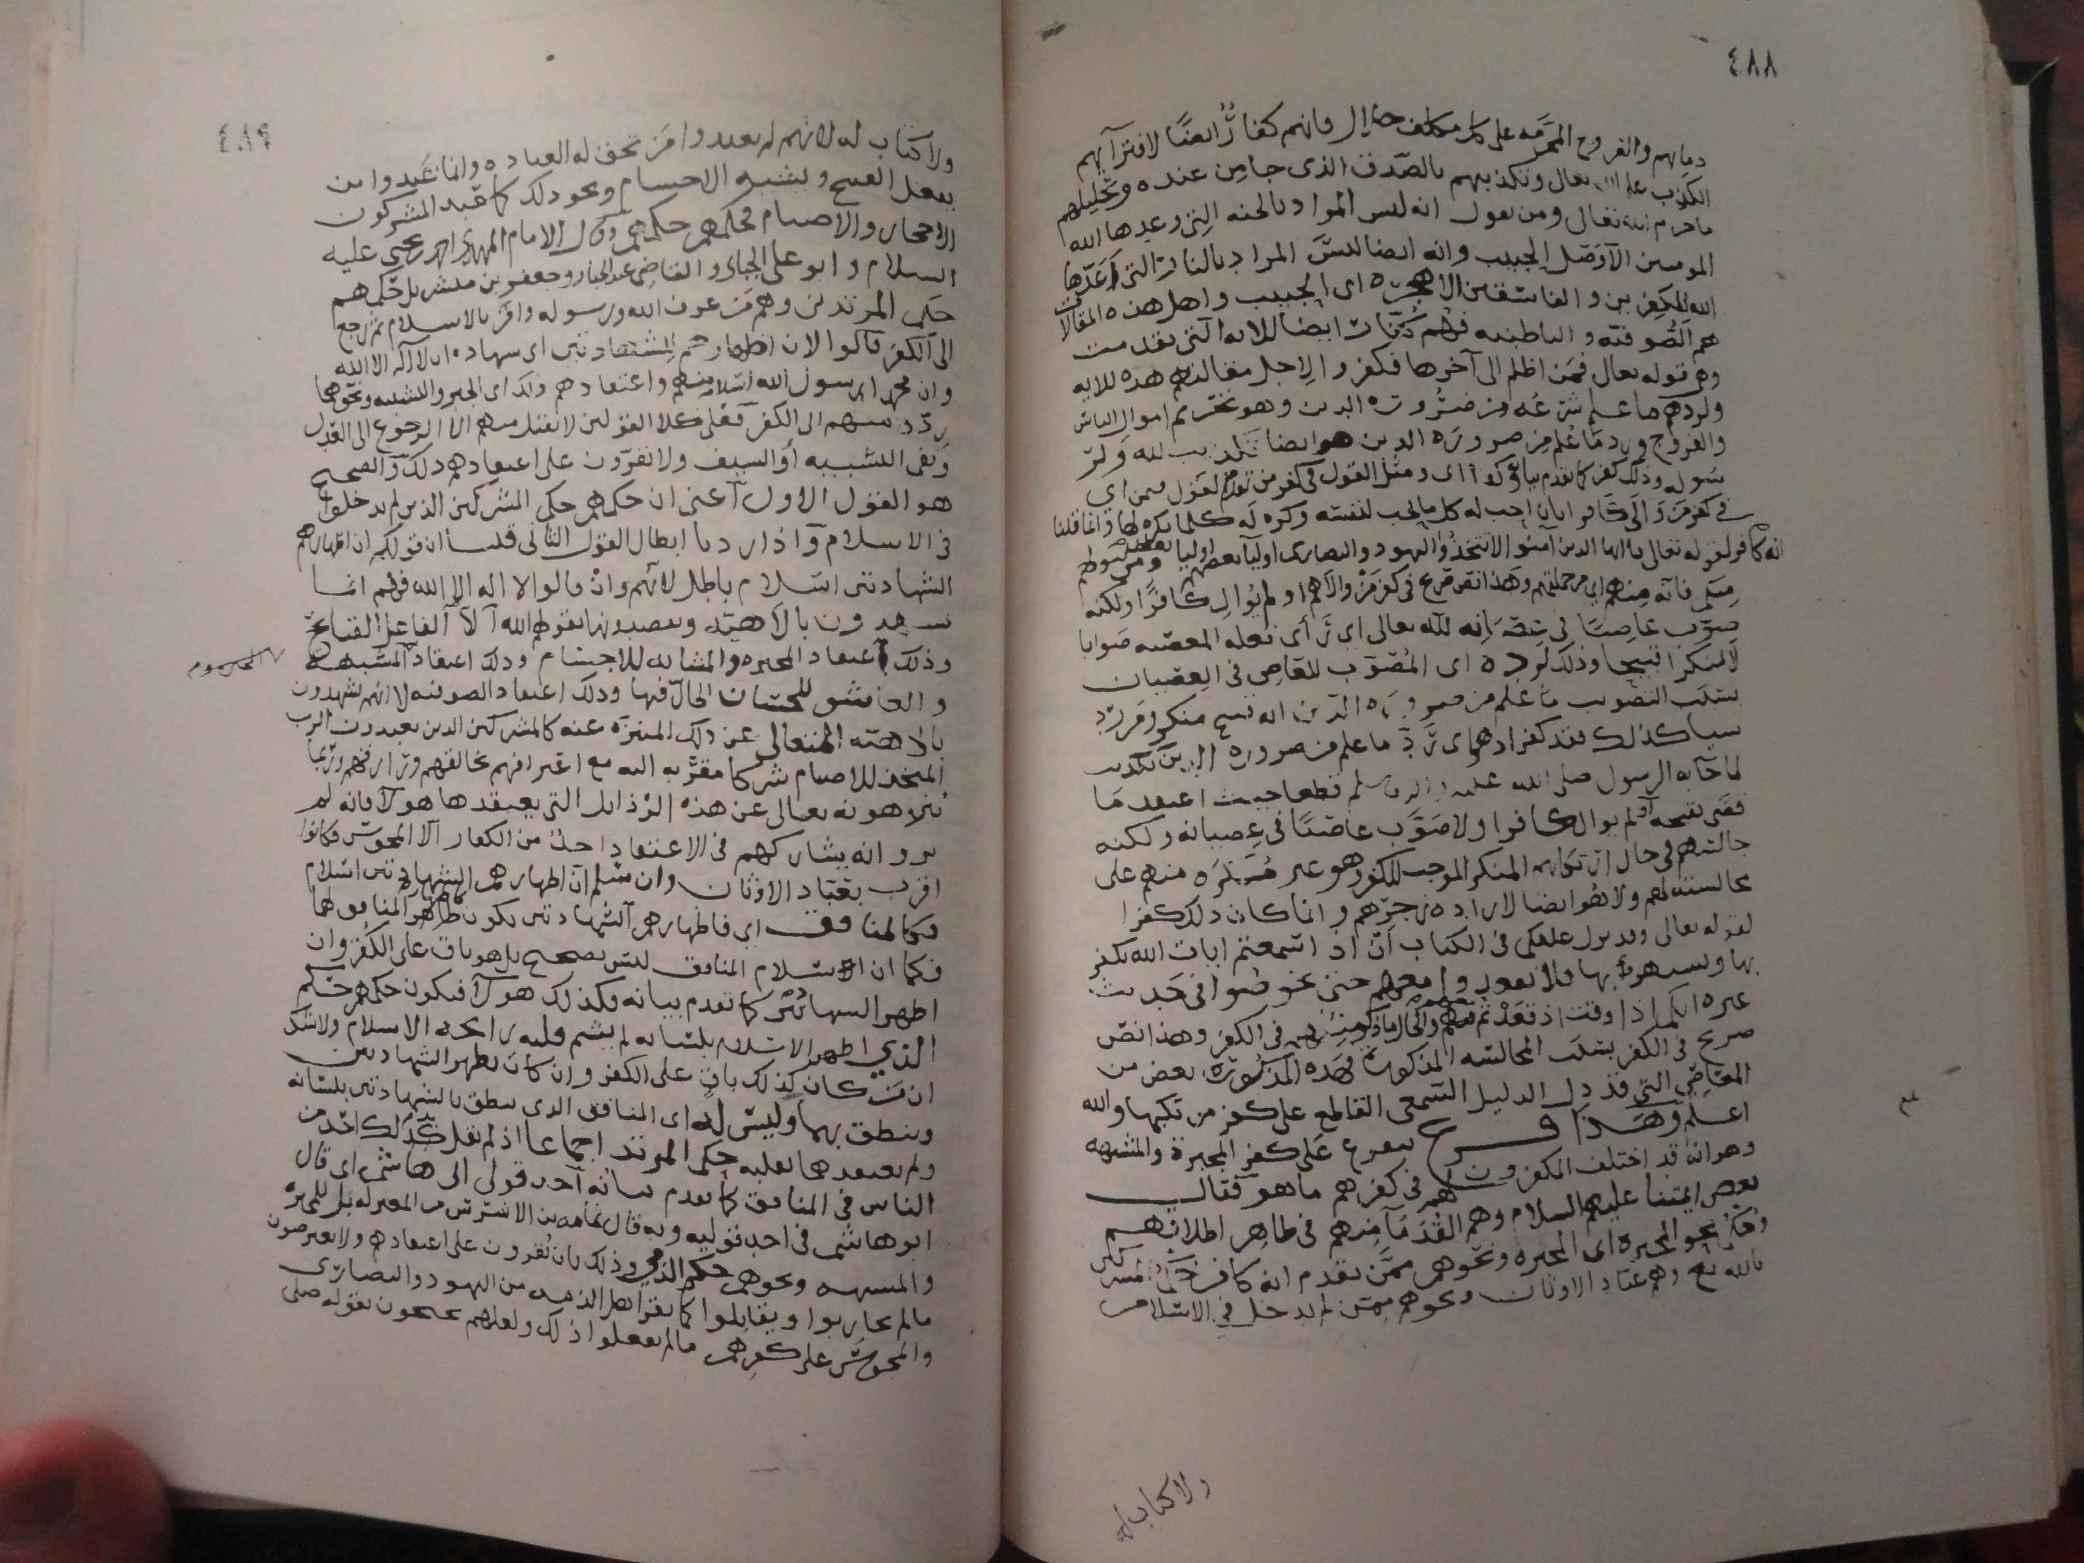 ٤٨٨
دمايهم والفروج المحرمه على كل مكلف حلال فانهم كفار ايضًا لافترآيهم
الكذب على الله تعالى وتكذيبهم بالصدق الذى جا من عنده وتحليلهم
ما حرم الله تعالى ومن يقول انه ليس المراد بالجنه التى وعدها الله
المومنين الا وصل الحبيب وانه ايضا ليس المراد بالنار التى اعدها
الله للكفرين والفاسقين الا هجره اى الحبيب واهل هذه المقالات
هم الصوفية والباطنيه فهم كفار ايضا للايه التى تقدمت
وهى قوله تعالى فمن اظلم الى آخرها فكفروا لاجل مقالتهم هذه للايه
ولردهم ما علم شرعه من ضرورة الدين وهو تحريم اموال الناس
والفروج ورد ما علم من ضرورة الدين هو ايضا تكذيب لله ولر
سوله وذلك كفر كما تقدم بيانه وكذا اى ومثل القول فى كفر من تقدم القول فيمن اى
فى كفر من والى كافرا بان احب له كل ما يحب لنفسه وكره له كلما يكره لها وانما قلنا
انه كافر لقوله تعالى يا ايها الذين آمنوا لا تتخذوا اليهود والنصارى اوليآ بعضهم اوليا بعض ومن يتولهم
منكم فانه منهم اى من جملتهم وهذا نص صريح فى كفر من والاهم او لم يوال كافرًا ولكنه
صوب عاصيًا فى عصيانه لله تعالى اى رَأى فعله المعصيه صوابا
لا منكرا قبيحا وذلك لرده اى المصوب للعاصى فى العصيان
بسبب التصويب ما علم من ضرورة الدين انه قبيح منكر ومن رد
سيا كذلك فقد كفر اذ هو اى رد ما علم من ضرورة الدين تكذيب
لما جآ به الرسول صلى الله عليه واله وسلم قطعا حيث اعتقد ما
قضى بقبحه او لم يوال كافرا ولا صوب عاصيًا فى عصيانه ولكنه
جالسهم فى حال ارتكابهم المنكر الموجب للكفر وهو غير مُكره منهم على
مجالسته لهم ولا هو ايضا لاراده زجرهم وانما كان ذلك كفرا
لقوله تعالى وقد نزل عليكم فى الكتاب ان اذا سمعتم ايات الله يكفر
بها ويستهزء بها فلا تقعدوا معهم حتى يخوضوا فى حديث
غيره انكم اذا اى وقت اذ قعدتم معهم والحال ما ذكر مثلهم فى الكفر وهذا نص
صريح فى الكفر بسبب المجالسه المذكورة فهذه المذكوره بعض من
المعاصى التى قد دل الدليل السمعى القاطع على كفر مرتكبها والله
اعلم وهذا فرع يتفرع على كفر المجبرة والمشبهه
وهو انه قد اختلف المكفرون لهم فى كفرهم ما هو فقال
بعض ايمتنا عليهم السلام وهم القدمآ منهم فى ظاهر اطلاقهم
وحكم نحو المجبره اى المجبره ونحوهم ممن تقدم انه كافر حكم المشركين
بالله تع وهم عباد الاوثان ونحوهم ممن لم يدخل فى الاسلام
ولا كتاب له
٤٨٩
ولا كتاب له لانهم لم يعبدوا من تحق له العباده وانما عبدوا من
يفعل القبيح ويشبه الاجسام ونحو ذلك كما عبد المشركون
الاحجار والاصنام فحكمهم حكمهم وقال الامام المهدى احمد بن يحيى عليه
السلام وابو على الجبائى والقاضى عبد الجبار وجعفر بن مبشر بل حكمهم
حكم المرتدين وهم من عرف الله ورسوله واقر بالاسلام ثم رجع
الى الكفر قالوا لان اظهارهم الشهادتين اى شهاده ان لا اله الا الله
وان محمدا رسول الله اسلام منهم واعتقادهم ذلك اى الجبر والتشبيه ونحوهما
ردة منهم الى الكفر فعلى كلا القولين لا يقبل منهم الا الرجوع الى العدل
ونفى التشبيه أو السيف ولا يقرون على اعتقادهم ذلك والصحيح
هو القول الاول أعنى ان حكمهم حكم المشركين الذين لم يدخلوا
فى الاسلام واذا اردنا ابطال القول الثانى قلنا ان قولكم ان اظهارهم
الشهادتين اسلام باطل لانهم وان قالوا لا اله الا الله فهم انما
يشهدون بالالهية ويقصدونها بقولهم الله الا الفاعل القبائح
وذلك اعتقاد المجبره والمشابه للاجسام وذلك اعتقاد المشبهه
المرسوم
والعاشق للحسان الحال فيها وذلك اعتقاد الصوفيه لا انهم يشهدون
بالالهيه للمتعالى عن ذلك المنزه عنه كالمشركين الذين يعبدون الرب
المتخذ للاصنام شركا مقربه اليه مع اعترافهم بخالقهم ورازقهم وربما
ينزهونه تعالى عن هذه الرذايل التى يعتقدها هولآ فانه لم
يرو انه يشاركهم فى الاعتقاد احد من الكفار الا المجوس فكانوا
اقرب بعباد الاوثان وان سلم ان اظهارهم الشهادتين اسلام
فكالمنافق اى فاظهارهم الشهادتين يكون كاظهار المنافق لهما
فكما ان اسلام المنافق ليس بصحيح بل هو باق على الكفر وان
اظهر الشهادتين كما تقدم بيانه فكذلك هولآ فيكون حكمهم حكم
الذى اظهر الاسلام بلسانه لم يشم قلبه رائحة الاسلام ولا شك
ان من كان كذلك باق على الكفر وان كان يظهر الشهادتين
وينطق بهما وليس له اى المنافق الذى ينطق بالشهادتين بلسانه
ولم يعتقدهما بقلبه حكم المرتد اجماعا اذ لم يقل بذلك احد من
الناس فى المنافق كما تقدم بيانه أحد قولى ابى هاشم اى قال
ابو هاشم فى احد قوليه وبه قال ثمامه بن الاشرس من المعتزله بل للمجبره
والمشبهه ونحوهم حكم الذمى وذلك بان يُقرون على اعتقادهم ولا يعترضون
مالم يحاربوا ويقاتلوا كما يقر اهل الذمه من اليهود والنصارى
والمجوس على كفرهم مالم يفعلوا ذلك ولعلهم يحتجون بقوله صلى